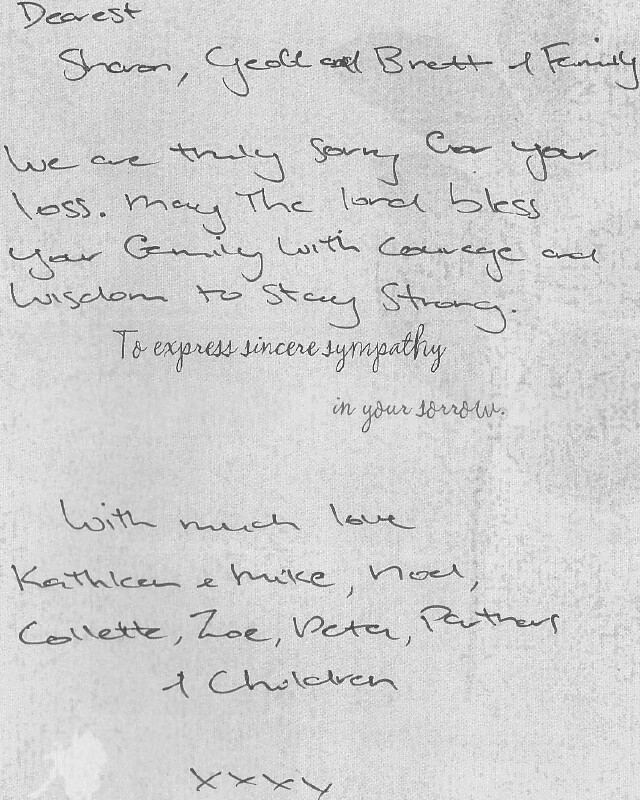 Dearest
Sharon, Geoff and Brett & Family
We are truly sorry for your
loss. May The lord bless
your family with courage and
wisdom to stay strong.
To express sincere sympathy
in your sorrow.
With much love
Kathleen & Mike, Noel,
Collette, Zoe, Peter, Partners
& Children
xxxx